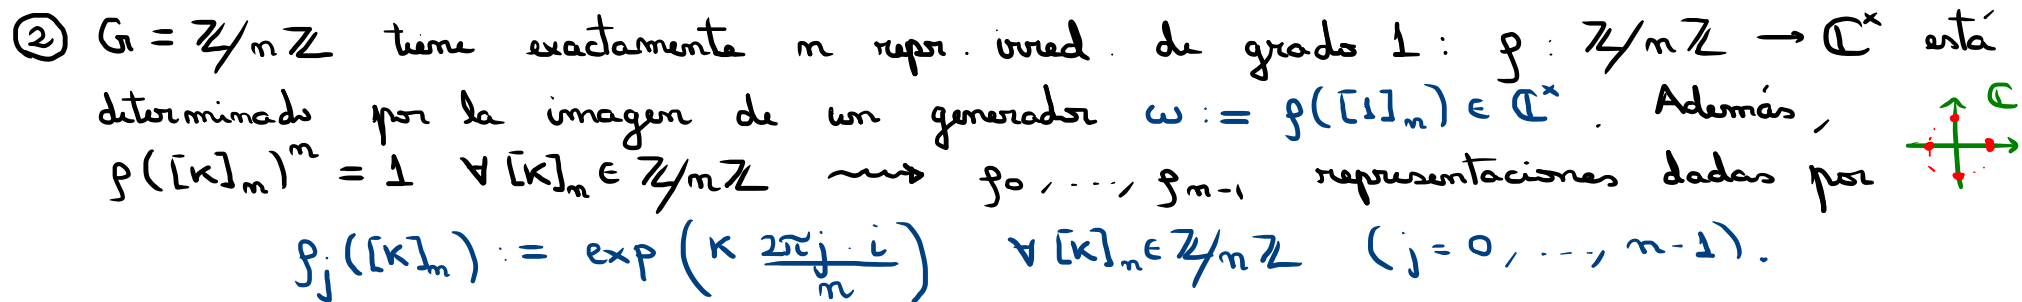 ② G = ℤ/nℤ tiene exactamente n repr. irred. de grado 1 : ρ : ℤ/nℤ → ℂ^× está
determinado por la imagen de un generador ω := ρ([1]_n) ∈ ℂ^×. Además,
ℂ
ρ([k]_n)^n = 1 ∀ [k]_n ∈ ℤ/nℤ ⇝ ρ_0, ..., ρ_{n-1} representaciones dadas por
ρ_j([k]_n) := exp(k \frac{2πj·i}{n}) ∀ [k]_n ∈ ℤ/nℤ (j = 0, ..., n-1).